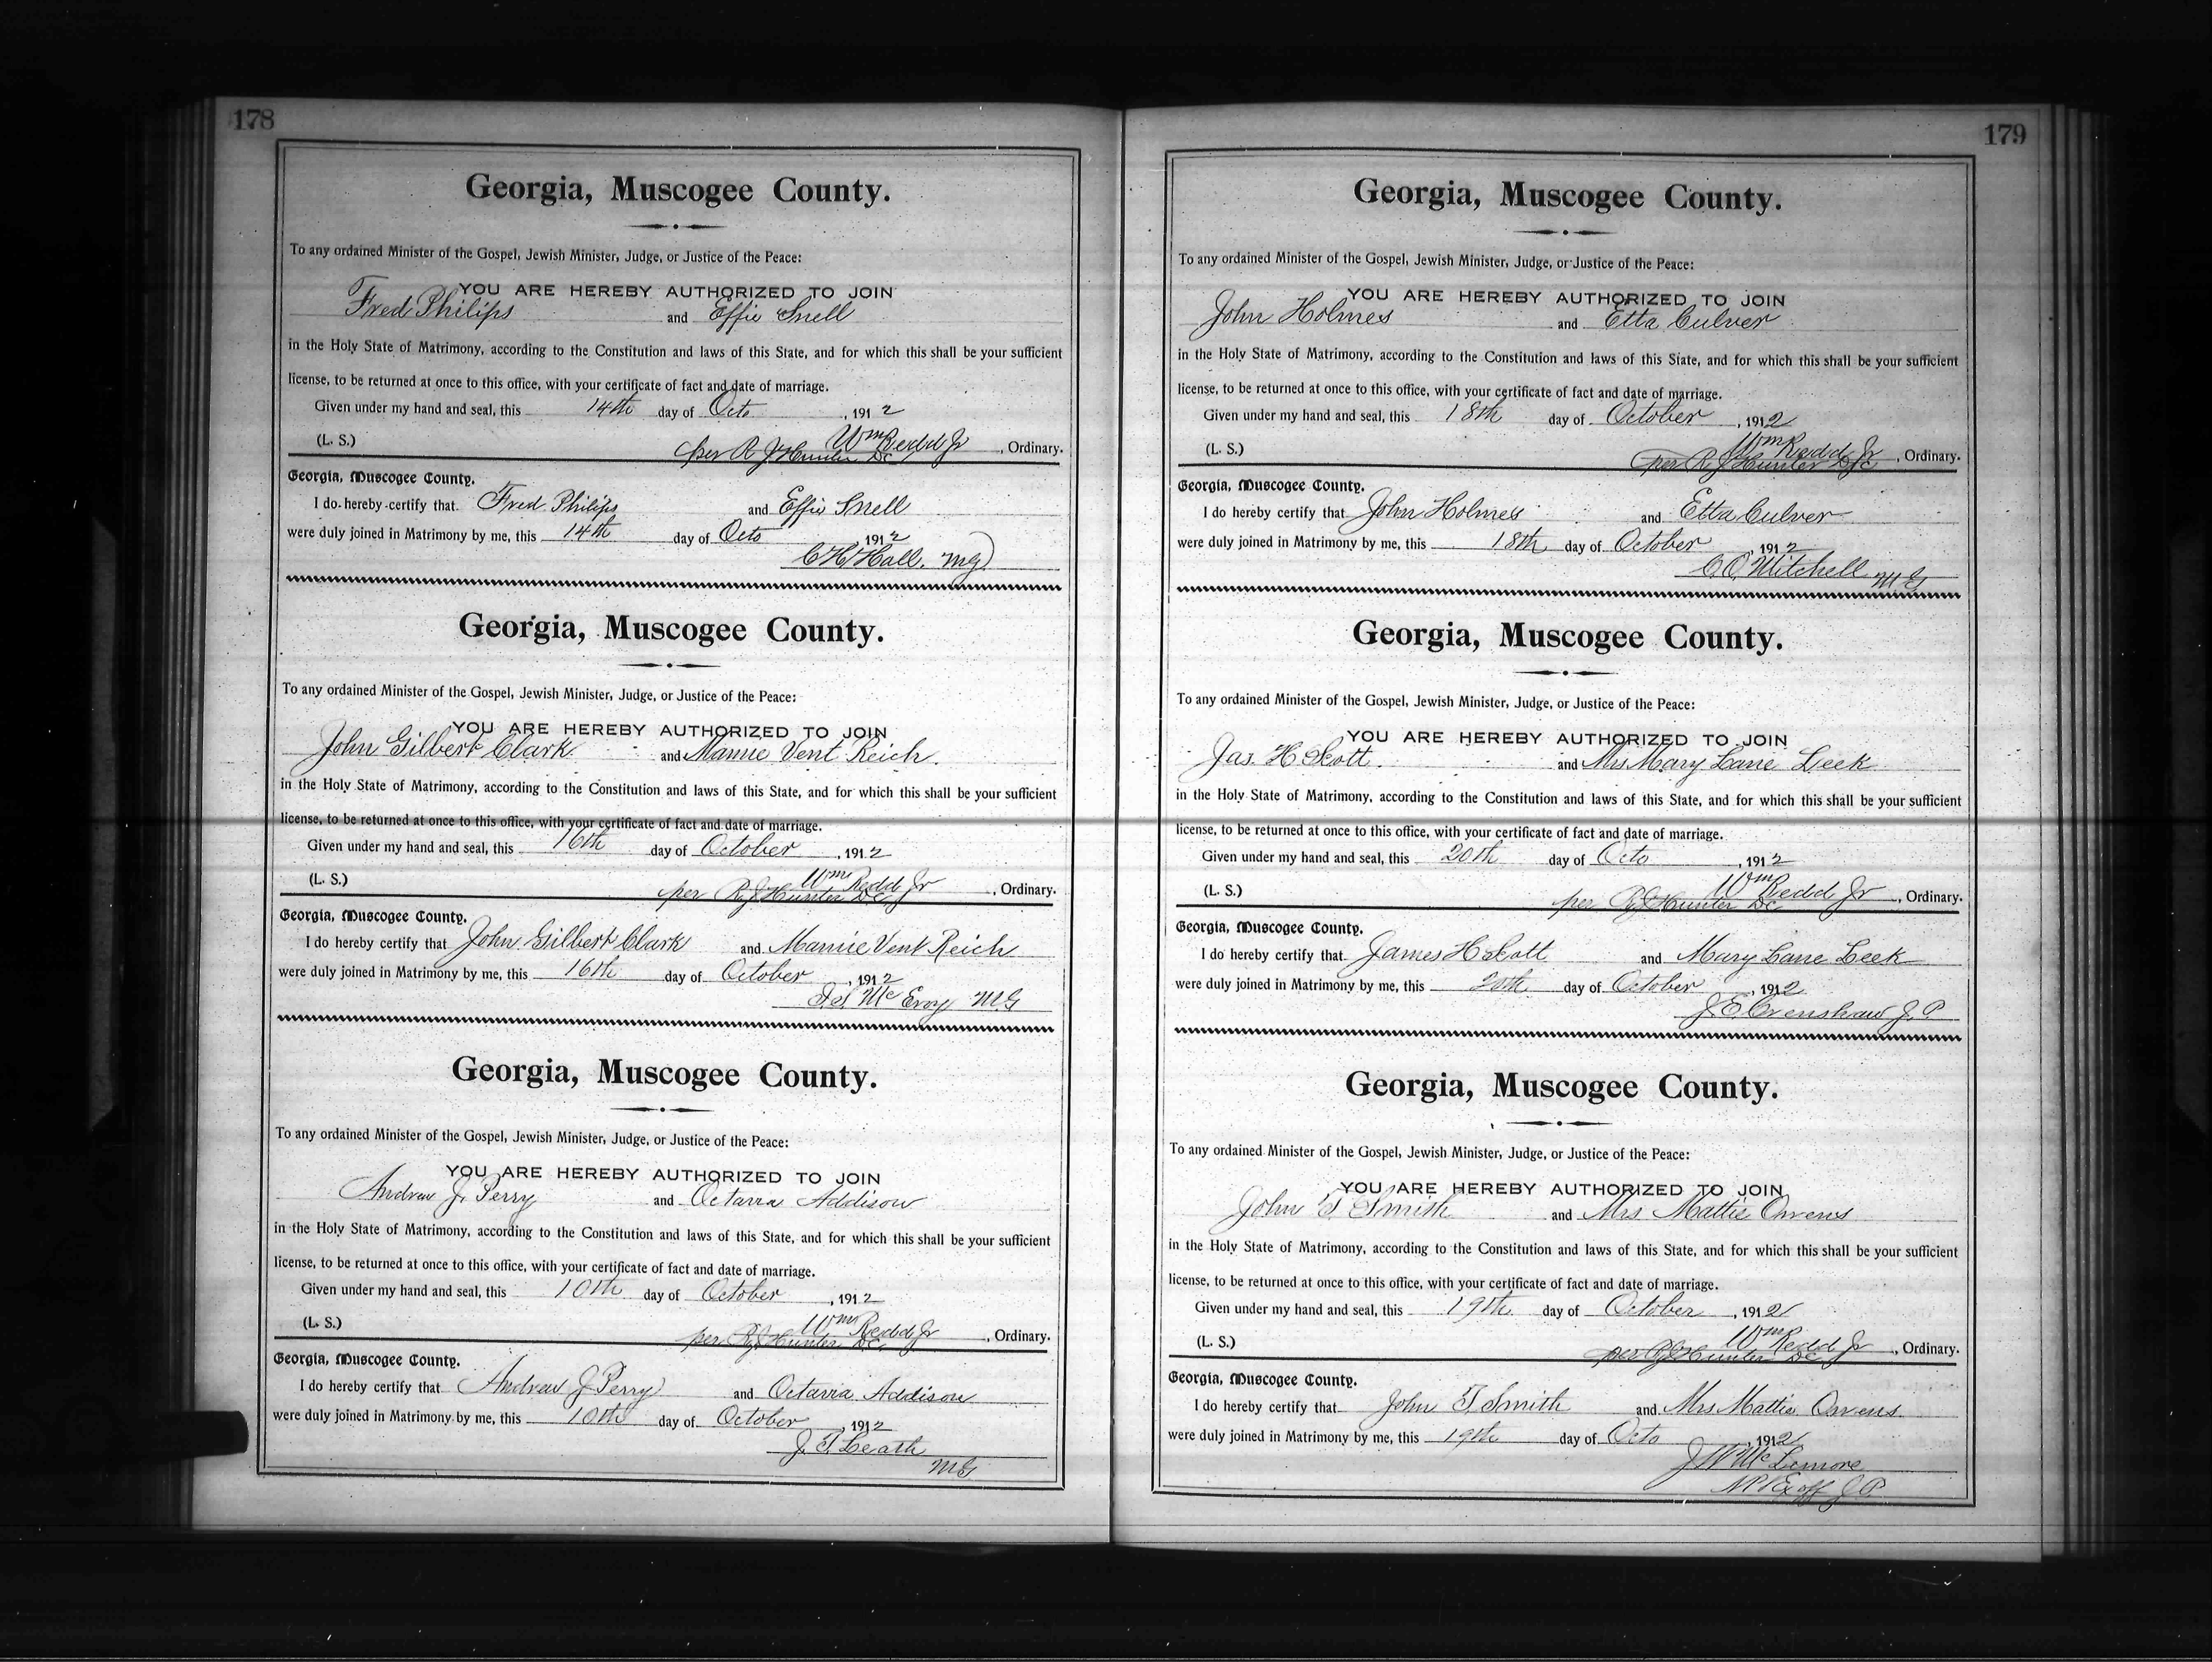 178
Georgia, Muscogee County.
To any ordained Minister of the Gospel, Jewish Minister, Judge, or Justice of the Peace:
YOU ARE HEREBY AUTHORIZED TO JOIN
Fred Philips and Effie Snell
in the Holy State of Matrimony, according to the Constitution and laws of this State, and for which this shall be your sufficient
license, to be returned at once to this office, with your certificate of fact and date of marriage.
Given under my hand and seal, this 14th day of Octo, 1912
(L. S.) Wm Redd Jr, Ordinary.
per R J Hunter DC
Georgia, Muscogee County.
I do hereby certify that Fred Philips and Effie Snell
were duly joined in Matrimony by me, this 14th day of Octo, 1912
C H Hall. mg
Georgia, Muscogee County.
To any ordained Minister of the Gospel, Jewish Minister, Judge, or Justice of the Peace:
YOU ARE HEREBY AUTHORIZED TO JOIN
John Gilbert Clark and Mamie Vent Reich.
in the Holy State of Matrimony, according to the Constitution and laws of this State, and for which this shall be your sufficient
license, to be returned at once to this office, with your certificate of fact and date of marriage.
Given under my hand and seal, this 16th day of October, 1912
(L. S.) Wm Redd Jr, Ordinary.
per R J Hunter DC
Georgia, Muscogee County.
I do hereby certify that John Gilbert Clark and Mamie Vent Reich
were duly joined in Matrimony by me, this 16th day of October, 1912
McEvoy M.G
Georgia, Muscogee County.
To any ordained Minister of the Gospel, Jewish Minister, Judge, or Justice of the Peace:
YOU ARE HEREBY AUTHORIZED TO JOIN
Andrew J. Perry and Octavia Addison
in the Holy State of Matrimony, according to the Constitution and laws of this State, and for which this shall be your sufficient
license, to be returned at once to this office, with your certificate of fact and date of marriage.
Given under my hand and seal, this 10th day of October, 1912
(L. S.) Wm Redd Jr, Ordinary.
per R J Hunter DC
Georgia, Muscogee County.
I do hereby certify that Andrew J Perry and Octavia Addison
were duly joined in Matrimony by me, this 10th day of October, 1912
J. T. Leath
MG
179
Georgia, Muscogee County.
To any ordained Minister of the Gospel, Jewish Minister, Judge, or Justice of the Peace:
YOU ARE HEREBY AUTHORIZED TO JOIN
John Holmes and Etta Culver
in the Holy State of Matrimony, according to the Constitution and laws of this State, and for which this shall be your sufficient
license, to be returned at once to this office, with your certificate of fact and date of marriage.
Given under my hand and seal, this 18th day of October, 1912
(L. S.) Wm Redd Jr, Ordinary.
per R J Hunter DC
Georgia, Muscogee County.
I do hereby certify that John Holmes and Etta Culver
were duly joined in Matrimony by me, this 18th day of October, 1912
C. C. Mitchell M G
Georgia, Muscogee County.
To any ordained Minister of the Gospel, Jewish Minister, Judge, or Justice of the Peace:
YOU ARE HEREBY AUTHORIZED TO JOIN
Jas. H Scott. and Mrs Mary Lane Leek
in the Holy State of Matrimony, according to the Constitution and laws of this State, and for which this shall be your sufficient
license, to be returned at once to this office, with your certificate of fact and date of marriage.
Given under my hand and seal, this 20th day of Octo, 1912
(L. S.) Wm Redd Jr, Ordinary.
per R J Hunter DC
Georgia, Muscogee County.
I do hereby certify that James H Scott and Mary Lane Leek
were duly joined in Matrimony by me, this 20th day of October, 1912
J. E. Crenshaw J. P.
Georgia, Muscogee County.
To any ordained Minister of the Gospel, Jewish Minister, Judge, or Justice of the Peace:
YOU ARE HEREBY AUTHORIZED TO JOIN
John T Smith and Mrs. Mattie Owens
in the Holy State of Matrimony, according to the Constitution and laws of this State, and for which this shall be your sufficient
license, to be returned at once to this office, with your certificate of fact and date of marriage.
Given under my hand and seal, this 19th day of October, 1912
(L. S.) Wm Redd Jr, Ordinary.
per R J Hunter DC
Georgia, Muscogee County.
I do hereby certify that John T. Smith and Mrs Mattie Owens.
were duly joined in Matrimony by me, this 19th day of Octo, 1912
J W McLemore
NP & Ex off J. P.